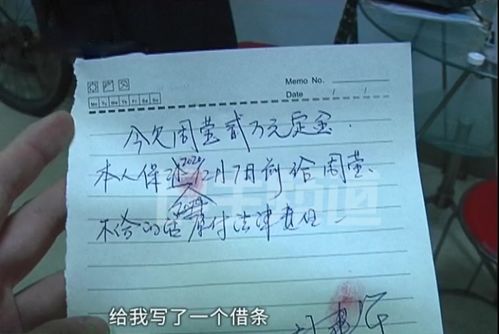 Memo No.
Date / /
Mo Tu We Th Fr Sa Su
今欠周莹贰万元定金.
2020
本人保证12月7日前给周莹.
不给的话 愿付法律责任.
给我写了一个借条